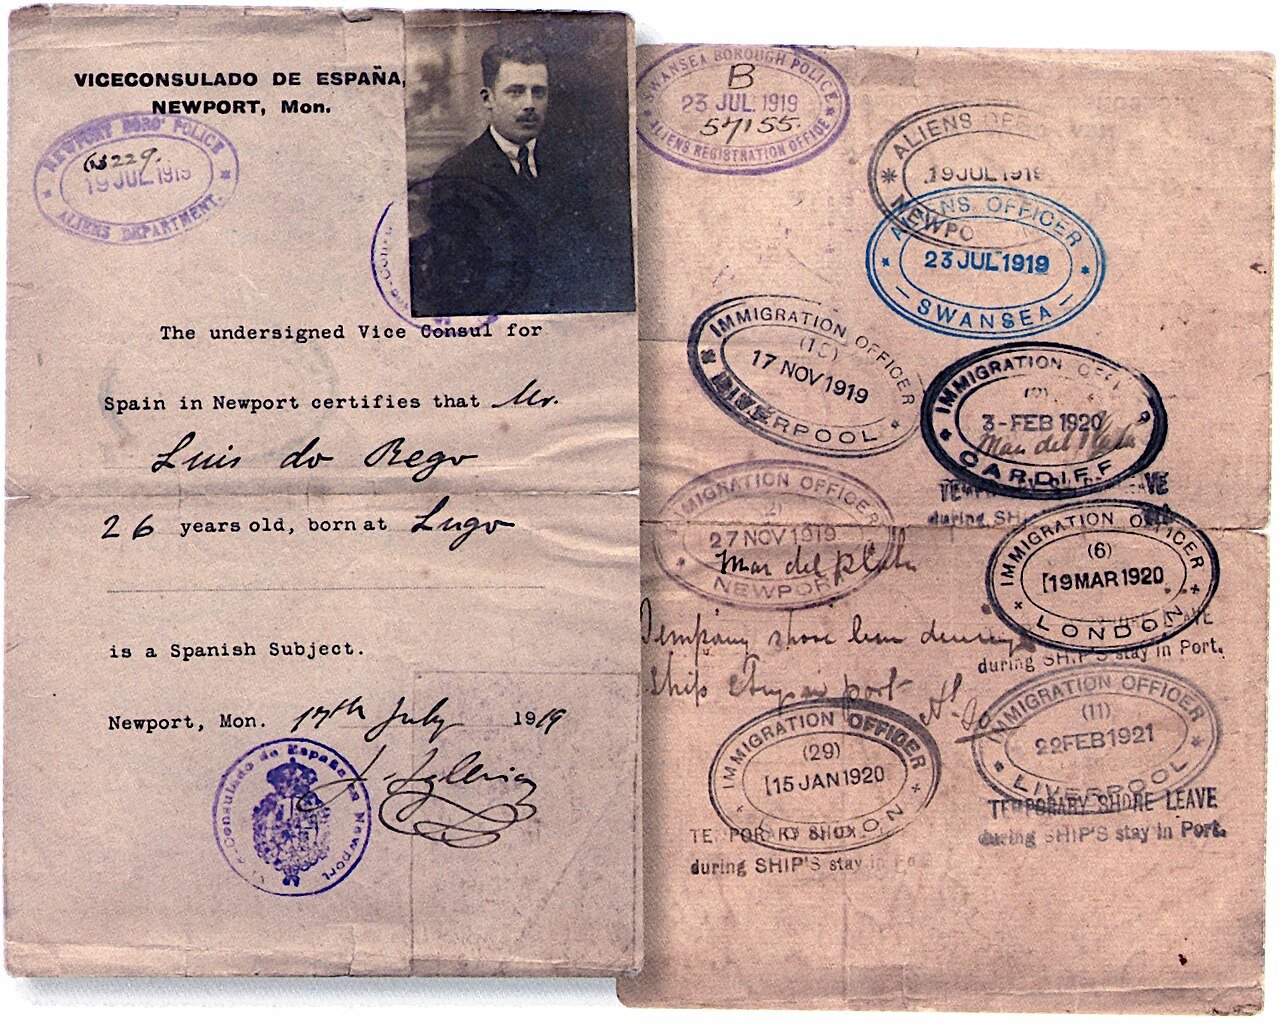 VICECONSULADO DE ESPAÑA,
NEWPORT, Mon.
NEWPORT BORO' POLICE
19 JUL 1919
ALIENS DEPARTMENT.
The undersigned Vice Consul for
Spain in Newport certifies that Mr.
Luis do Rego
26 years old, born at Lugo
is a Spanish Subject.
Newport, Mon. 17th July 1919
J. Iglesias
Consulado de España en Newport
SWANSEA BOROUGH POLICE
B
23 JUL 1919
57155.
ALIENS REGISTRATION OFFICE
ALIENS OFF
19 JUL 191
NEWPO
ALIENS OFFICER
23 JUL 1919
SWANSEA
IMMIGRATION OFFICER
17 NOV 1919
LIVERPOOL
IMMIGRATION OFFI
3-FEB 1920
Mar del Plata
CARDIFF
TEMPORARY SHORE LEAVE
during SH
IMMIGRATION OFFICER
(2)
27 NOV 1919
Mar del Plata
NEWPORT
IMMIGRATION OFFICER
(6)
19 MAR 1920
LONDON
LEAVE
during SHIP'S stay in Port.
Tempory shore leave during
ship stay in port
IMMIGRATION OFFICER
(29)
15 JAN 1920
LONDON
TEMPORARY SHOR
during SHIP'S stay in Po
IMMIGRATION OFFICER
(11)
22 FEB 1921
LIVERPOOL
TEMPORARY SHORE LEAVE
during SHIP'S stay in Port.